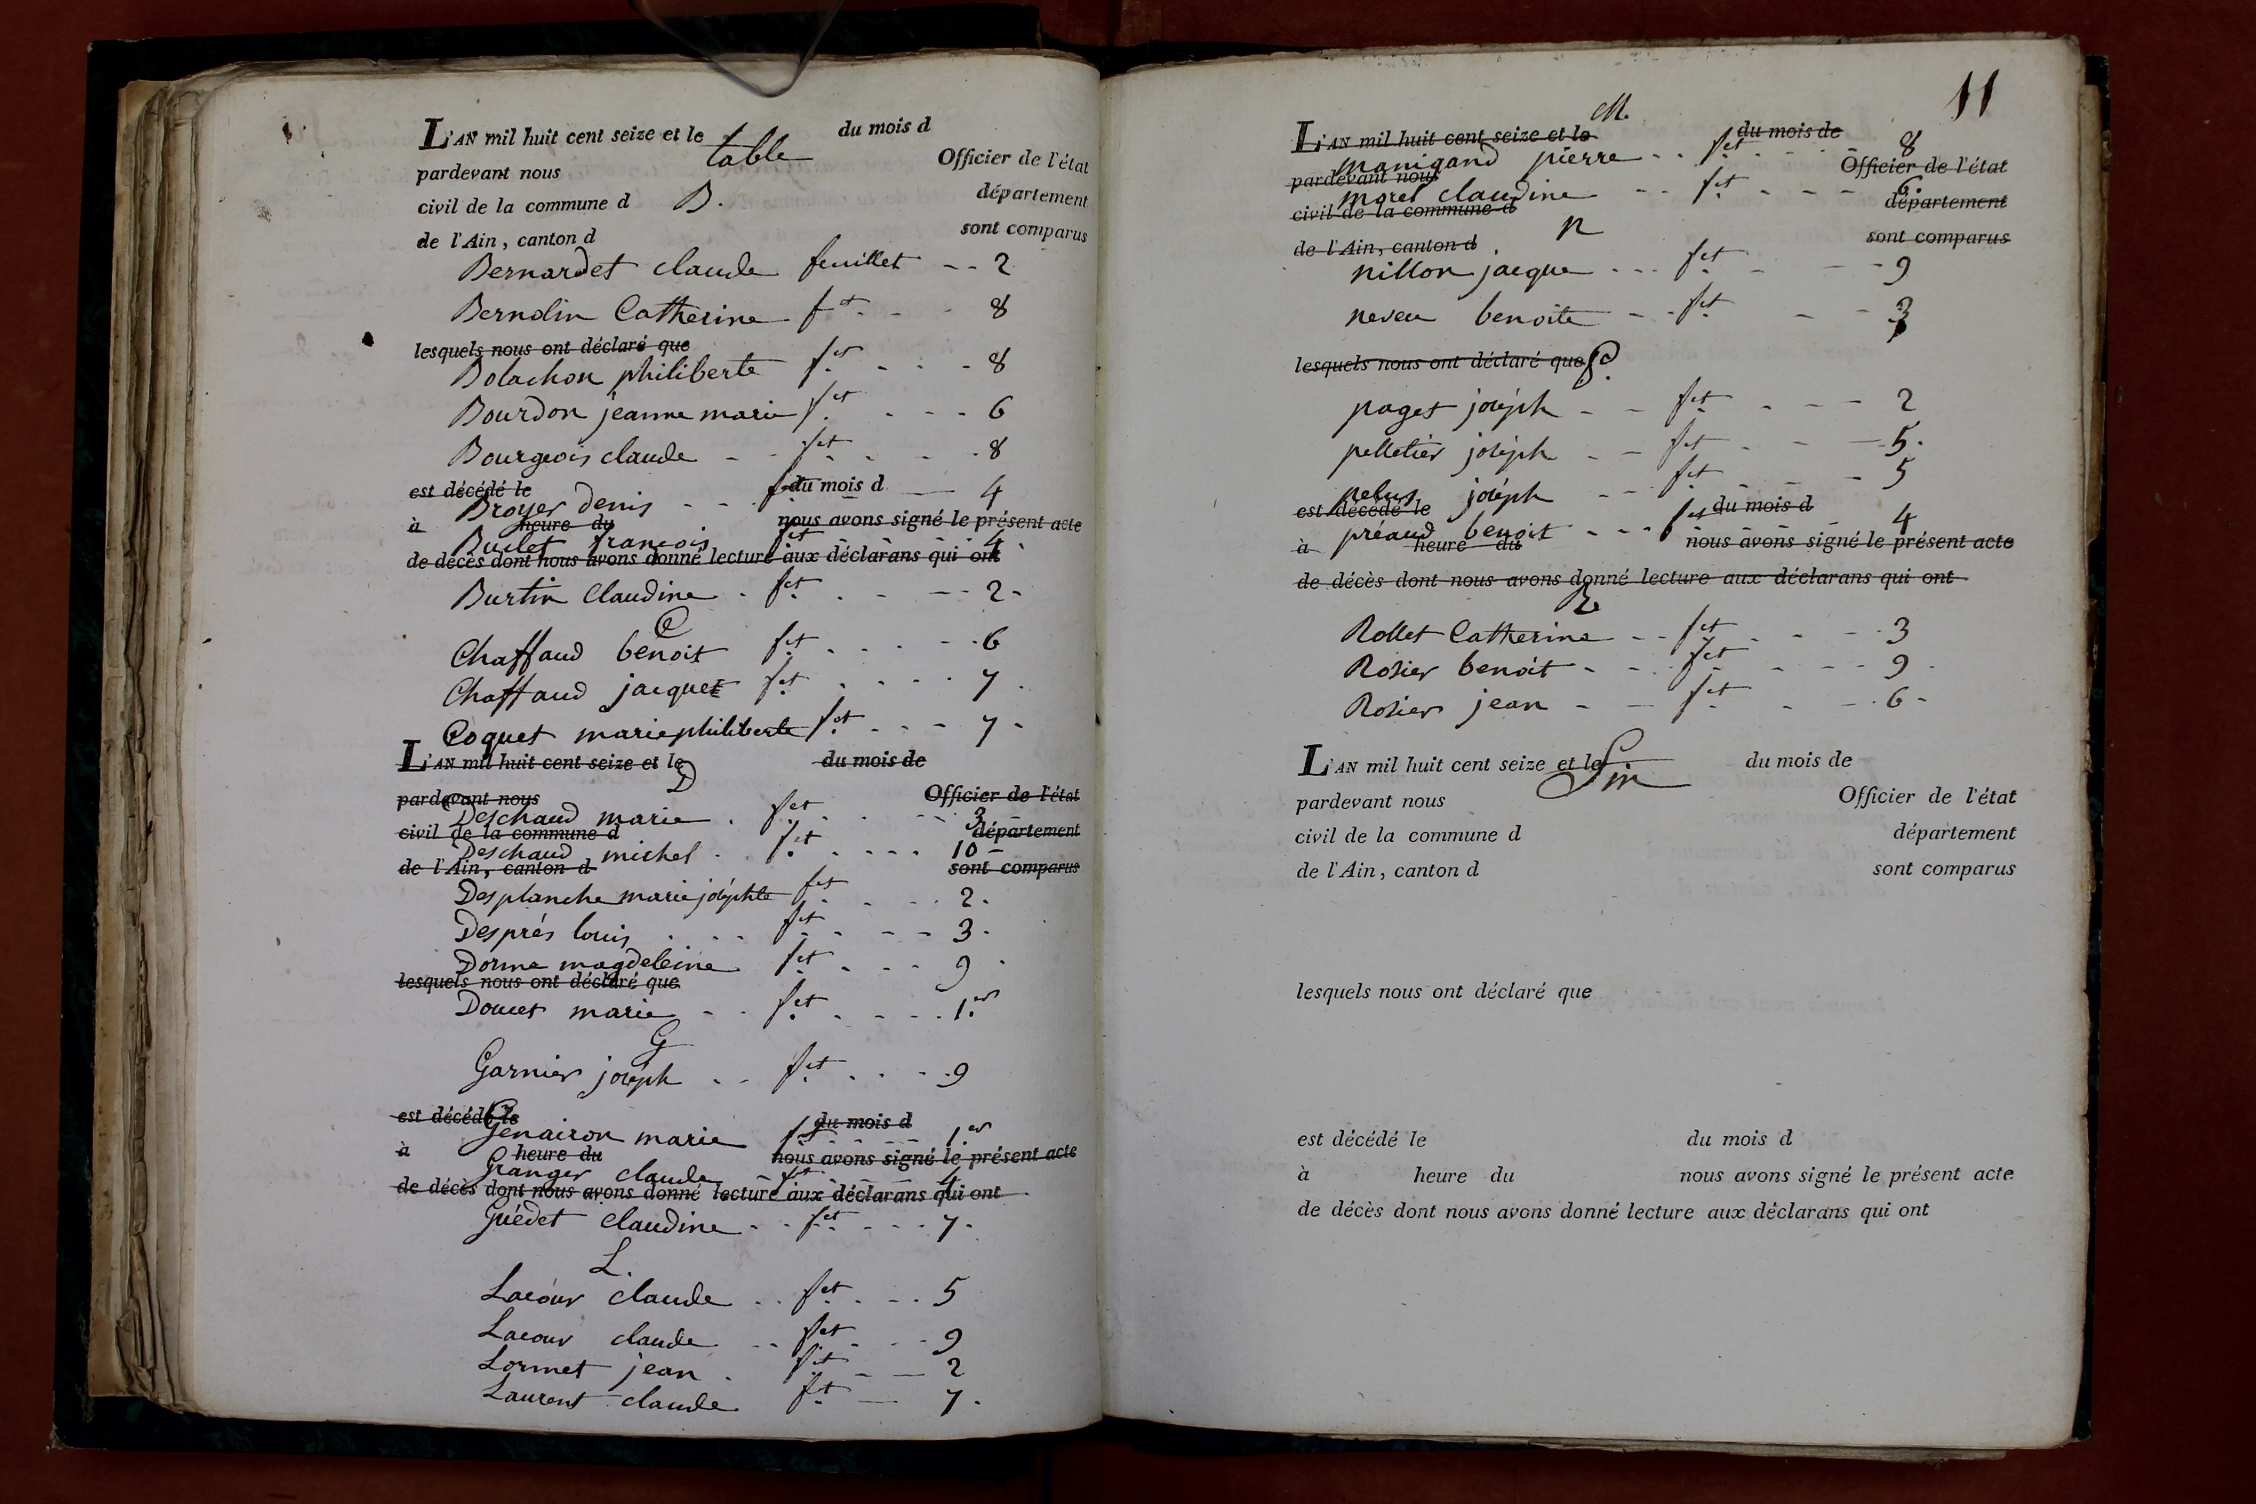 L'AN mil huit cent seize et le du mois d
table
pardevant nous Officier de l'état
civil de la commune d B. département
de l'Ain, canton d sont comparus
Bernardet claude feuillet -- 2
Berndin Catherine fet - - 8
lesquels nous ont déclaré que
Bolachon philiberte fet - - - 8
Bourdon jeanne marie fet - - - 6
Bourgeois claude - - fet - - - 8
est décédé le du mois d
Broyer denis - - fet - — 4
à heure du nous avons signé le présent acte
Buclet françois fet - - - - 4
de décès dont nous avons donné lecture aux déclarans qui ont
Burtin Claudine - fet - - -- 2 -
C
Chaffaud benoit fet - - - - 6
Chaffaud jacques fet - - - - 7
Coquet marie philiberte fet - - - 7 -
L'AN mil huit cent seize et le du mois de
D
pardevant nous Officier de l'état
Deschaud marie . fet - - - 3 -
civil de la commune d département
Deschaud michel . . fet - - - - 10 -
de l'Ain, canton d sont comparus
Desplanche marie joséphte fet - - - 2 -
Després louis - - - fet - - - 3 -
Dorme magdeleine fet - - - 9 -
lesquels nous ont déclaré que
Doucet marie - - fet - - - - 1.er
G
Garnier joséph - - fet - - - 9
est décédé le du mois d
Genairon marie fet - - - - 1.er
à heure du nous avons signé le présent acte
Granger claude - fet - - - - 4
de décès dont nous avons donné lecture aux déclarans qui ont
Guédet claudine - - fet - - - 7 -
L.
Lacour claude . . fet - - - 5
Lacour claude - - fet - - - 9
Lormet jean . fet - — 2
Laurent claude fet — 7 -
11
M.
L'AN mil huit cent seize et le du mois de
manigand pierre - - fet - - - 8
pardevant nous Officier de l'état
morel claudine - - fet - - - 6.
civil de la commune d département
n
de l'Ain, canton d sont comparus
nillon jacque - - - fet - - - 9
neveu benoite - - fet - - 3
lesquels nous ont déclaré que
P
paget joséph - - fet - - - 2
pelletier joséph - - fet - - — 5.
pelus joséph - - fet - - - 5
est décédé le du mois d
préaud benoit - - - fet - 4
à heure du nous avons signé le présent acte
de décès dont nous avons donné lecture aux déclarans qui ont
R
Rollet Catherine - - fet - - - 3
Rosier benoit - - - fet - - - - 9 -
Rosier jean - — fet - - - 6 -
L'AN mil huit cent seize et le du mois de
Fin
pardevant nous Officier de l'état
civil de la commune d département
de l'Ain, canton d sont comparus
lesquels nous ont déclaré que
est décédé le du mois d
à heure du nous avons signé le présent acte
de décès dont nous avons donné lecture aux déclarans qui ont